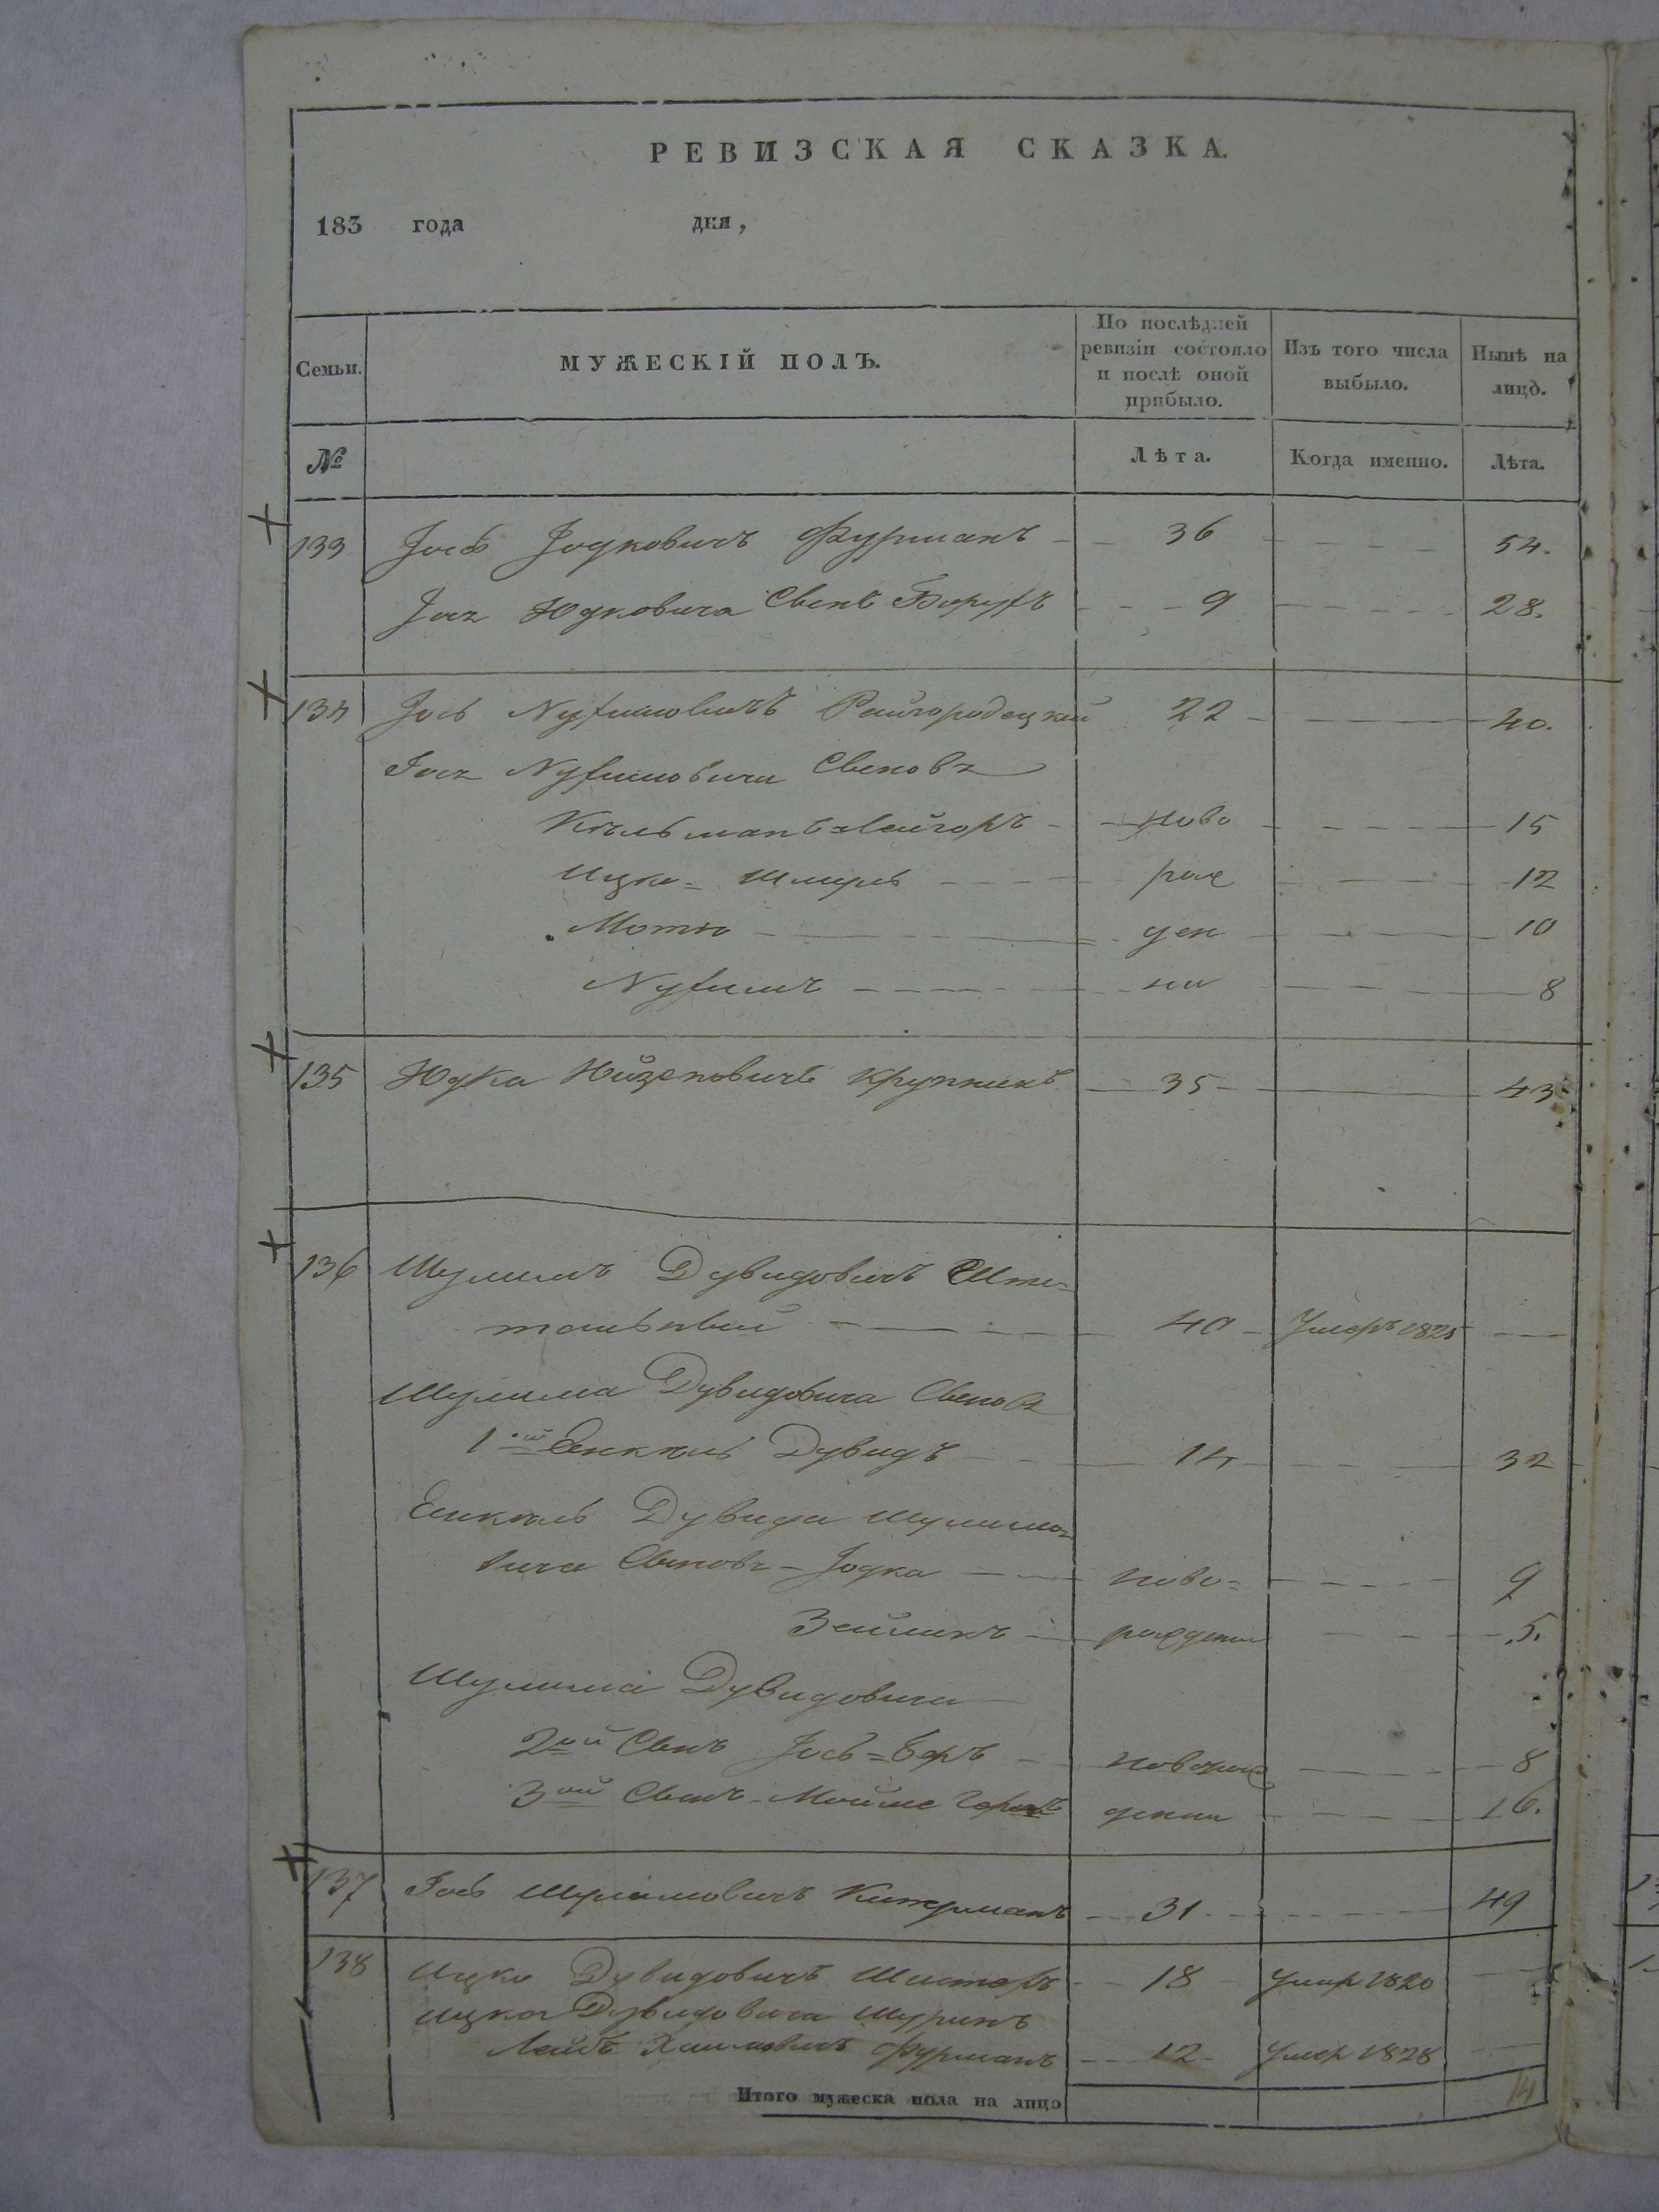 РЕВИЗСКАЯ СКАЗКА.
183 года дня,
Семьи. МУЖЕСКІЙ ПОЛЪ. По послѣдней ревизіи состояло и послѣ оной прибыло. Изъ того числа выбыло. Нынѣ на лицо.
№ Лѣта. Когда именно. Лѣта.
133 Іось Іодковичъ Фурманъ 36 54.
Іося Юдковича Сынъ Борухъ 9 28.
134 Іось Нухимовичъ Райгородецкий 22 40.
Іося Нухимовича Сыновья
Кельманъ=Лейзоръ ново 15
Ицко=Шмуль рож 12
Мотю ден 10
Нухимъ ни 8
135 Юдка Нойзеновичъ Крупникъ 35 43
136 Шулимъ Дувидовичъ
40 Умеръ 1825
Шулима Дувидовича Сыновья
1ой Янкель Дувидъ 14 32
Янкель Дувида Шулимо=
вича Сыновья Іодка ново= 9
Зейликъ рожденны 5.
Шулима Дувидовича
2ой Сынъ Іось=Беръ новорож 8
3ой Сынъ Мойше дении 16.
137 Іось Шулимовичъ Китерманъ 31 49
138 Ицко Дувидовичъ Шистеръ 18 умер 1820
Ицка Дувидовича Шуринъ
Лейбъ Хаимовичъ Фурманъ 12 умер 1828
Итого мужеска пола на лицо 14